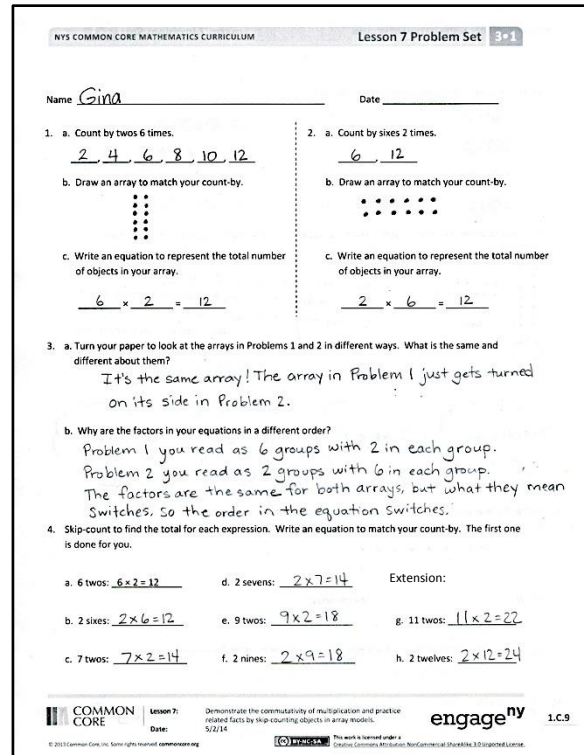 NYS COMMON CORE MATHEMATICS CURRICULUM
Lesson 7 Problem Set 3•1
Name Gina
Date
1. a. Count by twos 6 times.
2, 4, 6, 8, 10, 12
b. Draw an array to match your count-by.
c. Write an equation to represent the total number
of objects in your array.
6 × 2 = 12
2. a. Count by sixes 2 times.
6, 12
b. Draw an array to match your count-by.
c. Write an equation to represent the total number
of objects in your array.
2 × 6 = 12
3. a. Turn your paper to look at the arrays in Problems 1 and 2 in different ways. What is the same and
different about them?
It's the same array! The array in Problem 1 just gets turned
on its side in Problem 2.
b. Why are the factors in your equations in a different order?
Problem 1 you read as 6 groups with 2 in each group.
Problem 2 you read as 2 groups with 6 in each group.
The factors are the same for both arrays, but what they mean
Switches, so the order in the equation switches.
4. Skip-count to find the total for each expression. Write an equation to match your count-by. The first one
is done for you.
a. 6 twos: 6 × 2 = 12
d. 2 sevens: 2 × 7 = 14
Extension:
b. 2 sixes: 2 × 6 = 12
e. 9 twos: 9 × 2 = 18
g. 11 twos: 11 × 2 = 22
c. 7 twos: 7 × 2 = 14
f. 2 nines: 2 × 9 = 18
h. 2 twelves: 2 × 12 = 24
COMMON
CORE
Lesson 7:
Date:
Demonstrate the commutativity of multiplication and practice
related facts by skip-counting objects in array models.
5/2/14
engageny
1.C.9
© 2013 Common Core, Inc. Some rights reserved. commoncore.org
CC BY-NC-SA
This work is licensed under a
Creative Commons Attribution-NonCommercial-ShareAlike 3.0 Unported License.